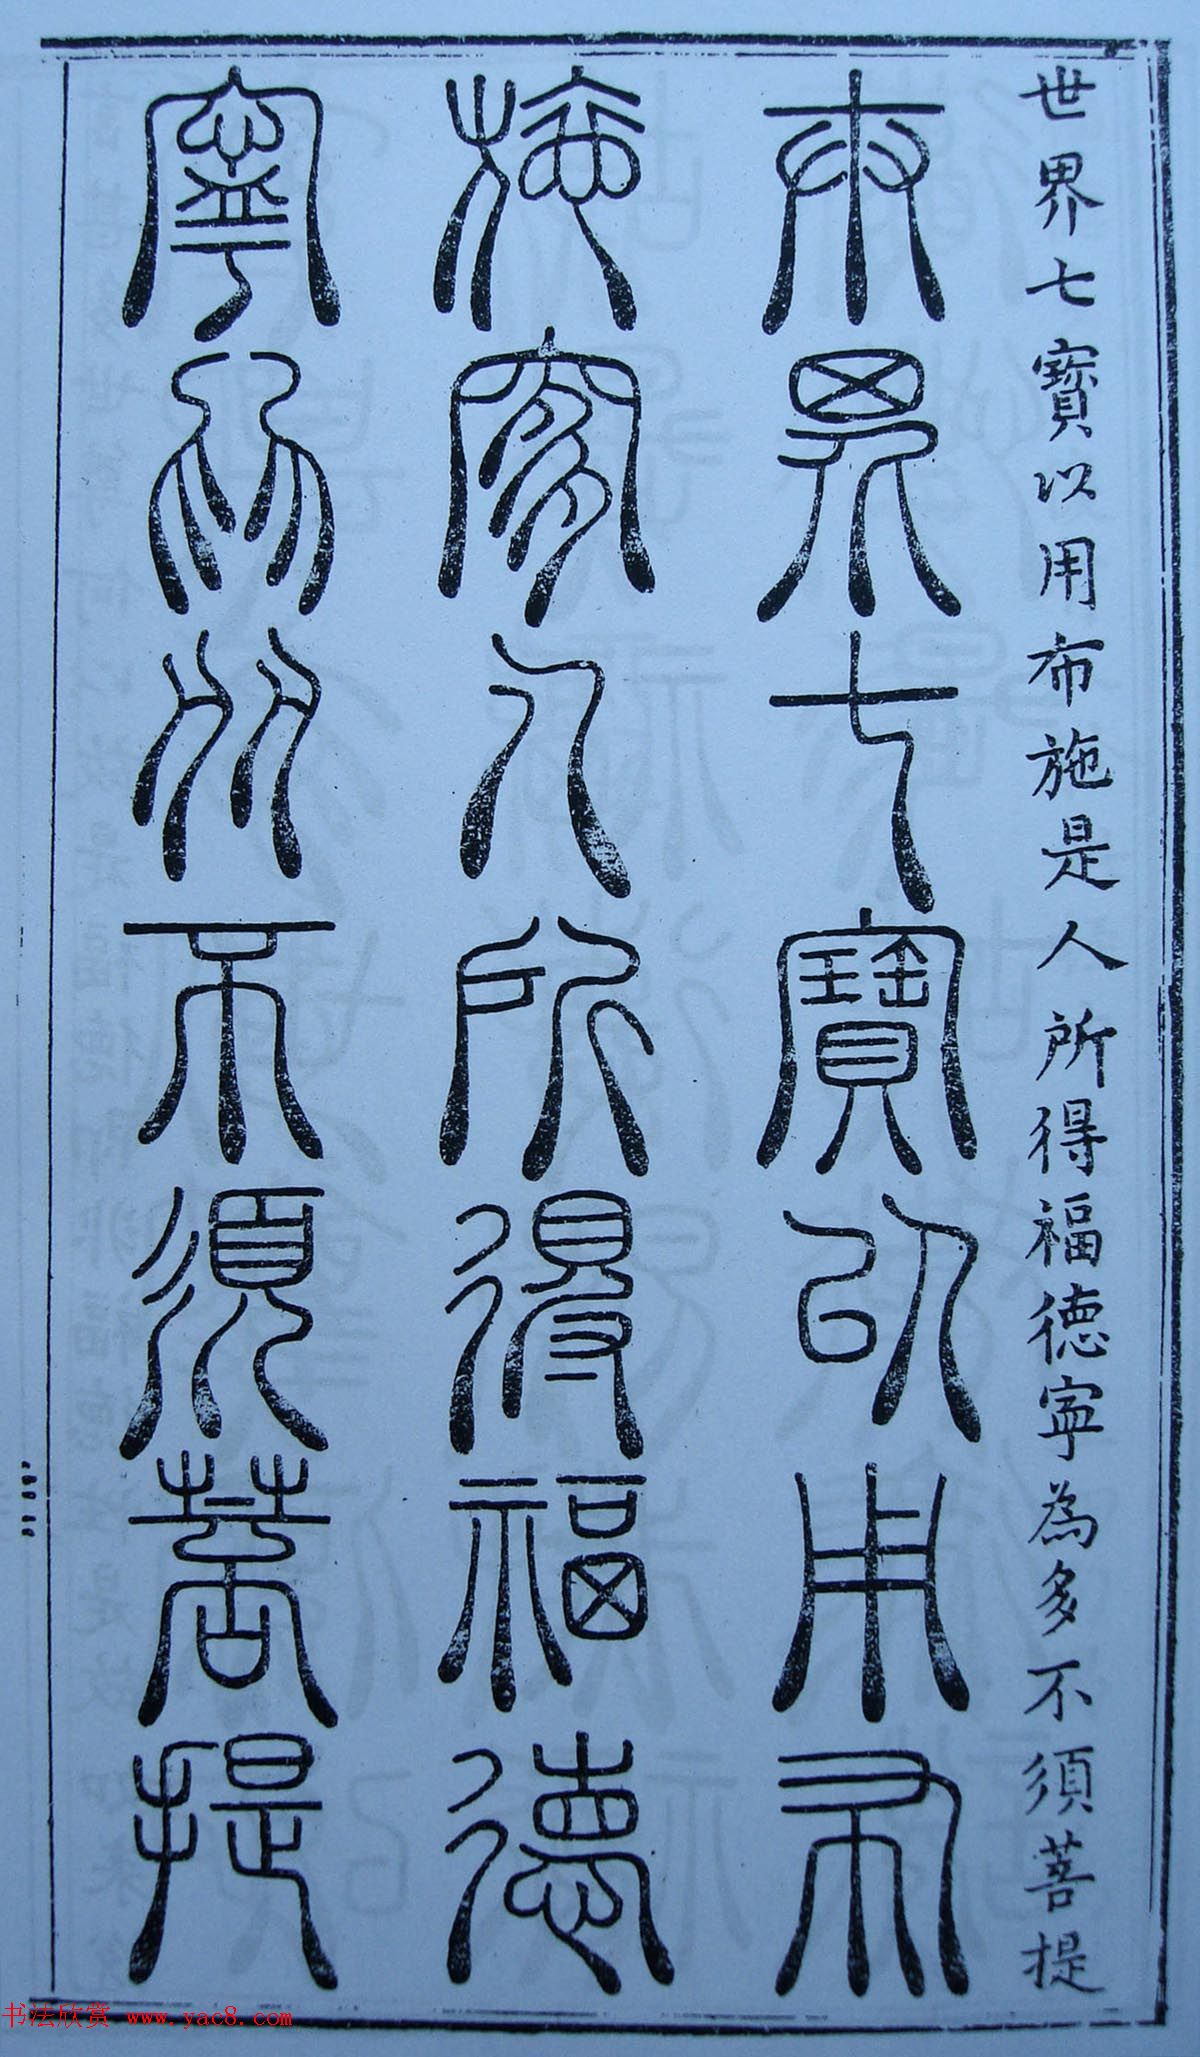 世界七寶以用布施是人所得福德寧為多不須菩提
世界七寶以用布
施是人所得福德
寧為多不須菩提
书法欣赏 www.yac8.com